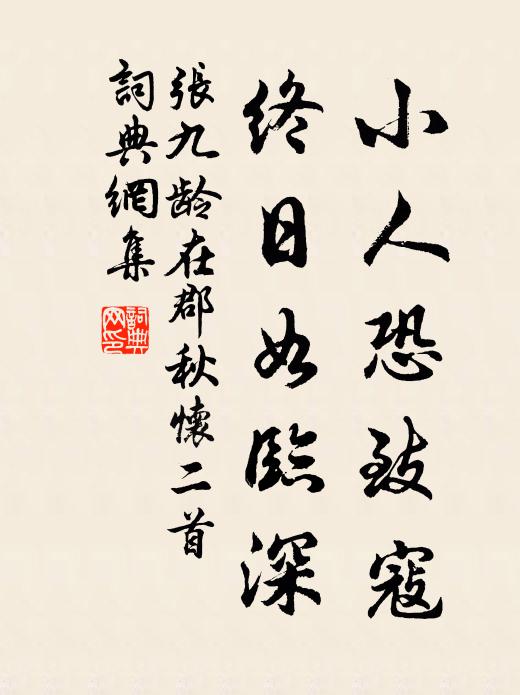 小人恐致寇
终日如臨深
張九龄在郡秋懷二首
詞典網集
詞典
网印